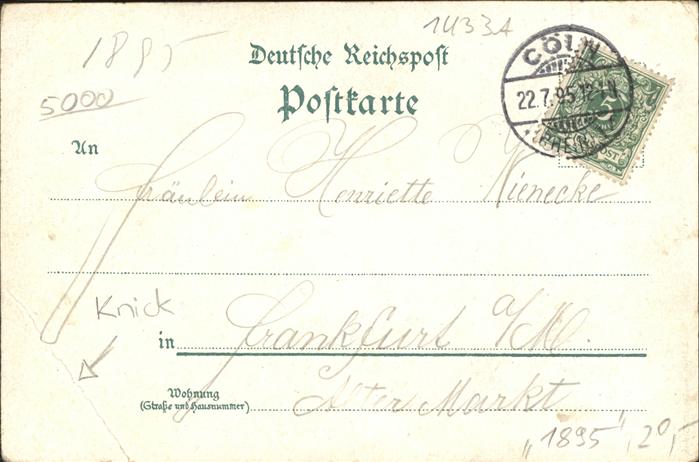 1895
1433A
Deutsche Reichspost
5000
Postkarte
CÖLN
22.7.95.12-1N
An
Fräulein Henriette Wienecke
Knick
in Frankfurt a/M.
Wohnung
(Straße und Hausnummer)
Alter Markt
„1895“ 20,-